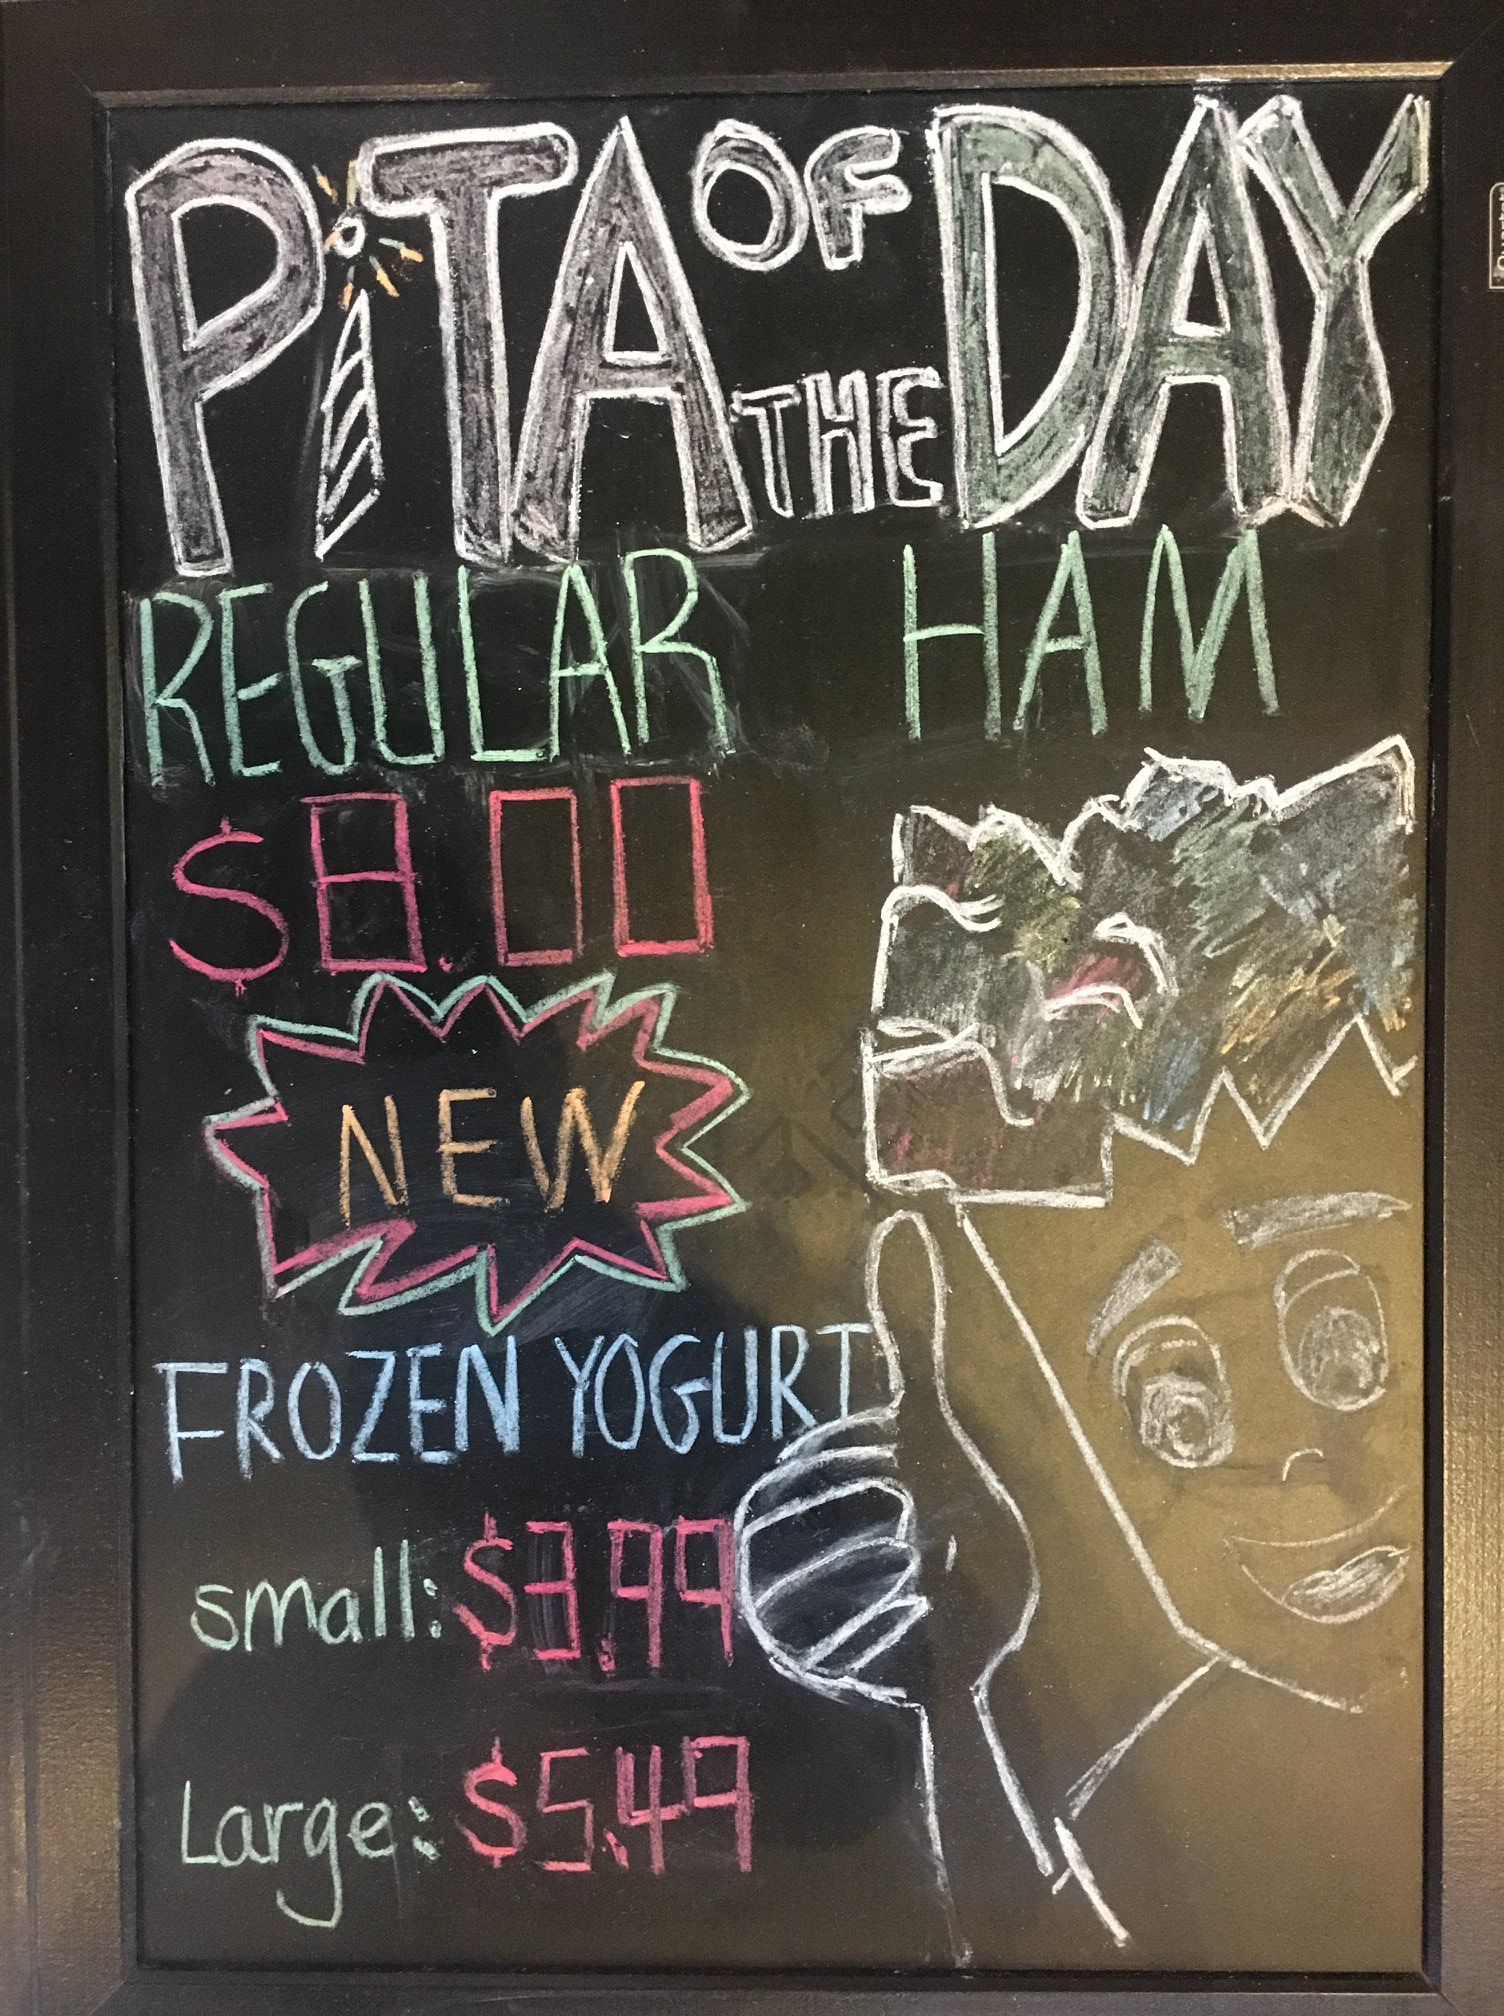 PiTA OF THE DAY
REGULAR HAM
$8.00
NEW
FROZEN YOGURT
small: $3.99
Large: $5.49